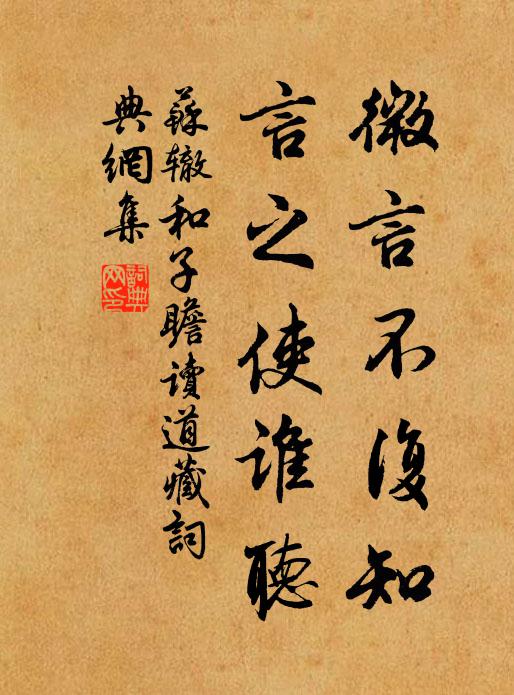 微言不復知
言之使誰聽
蘇轍和子瞻讀道藏詞
典網集
詞典網印